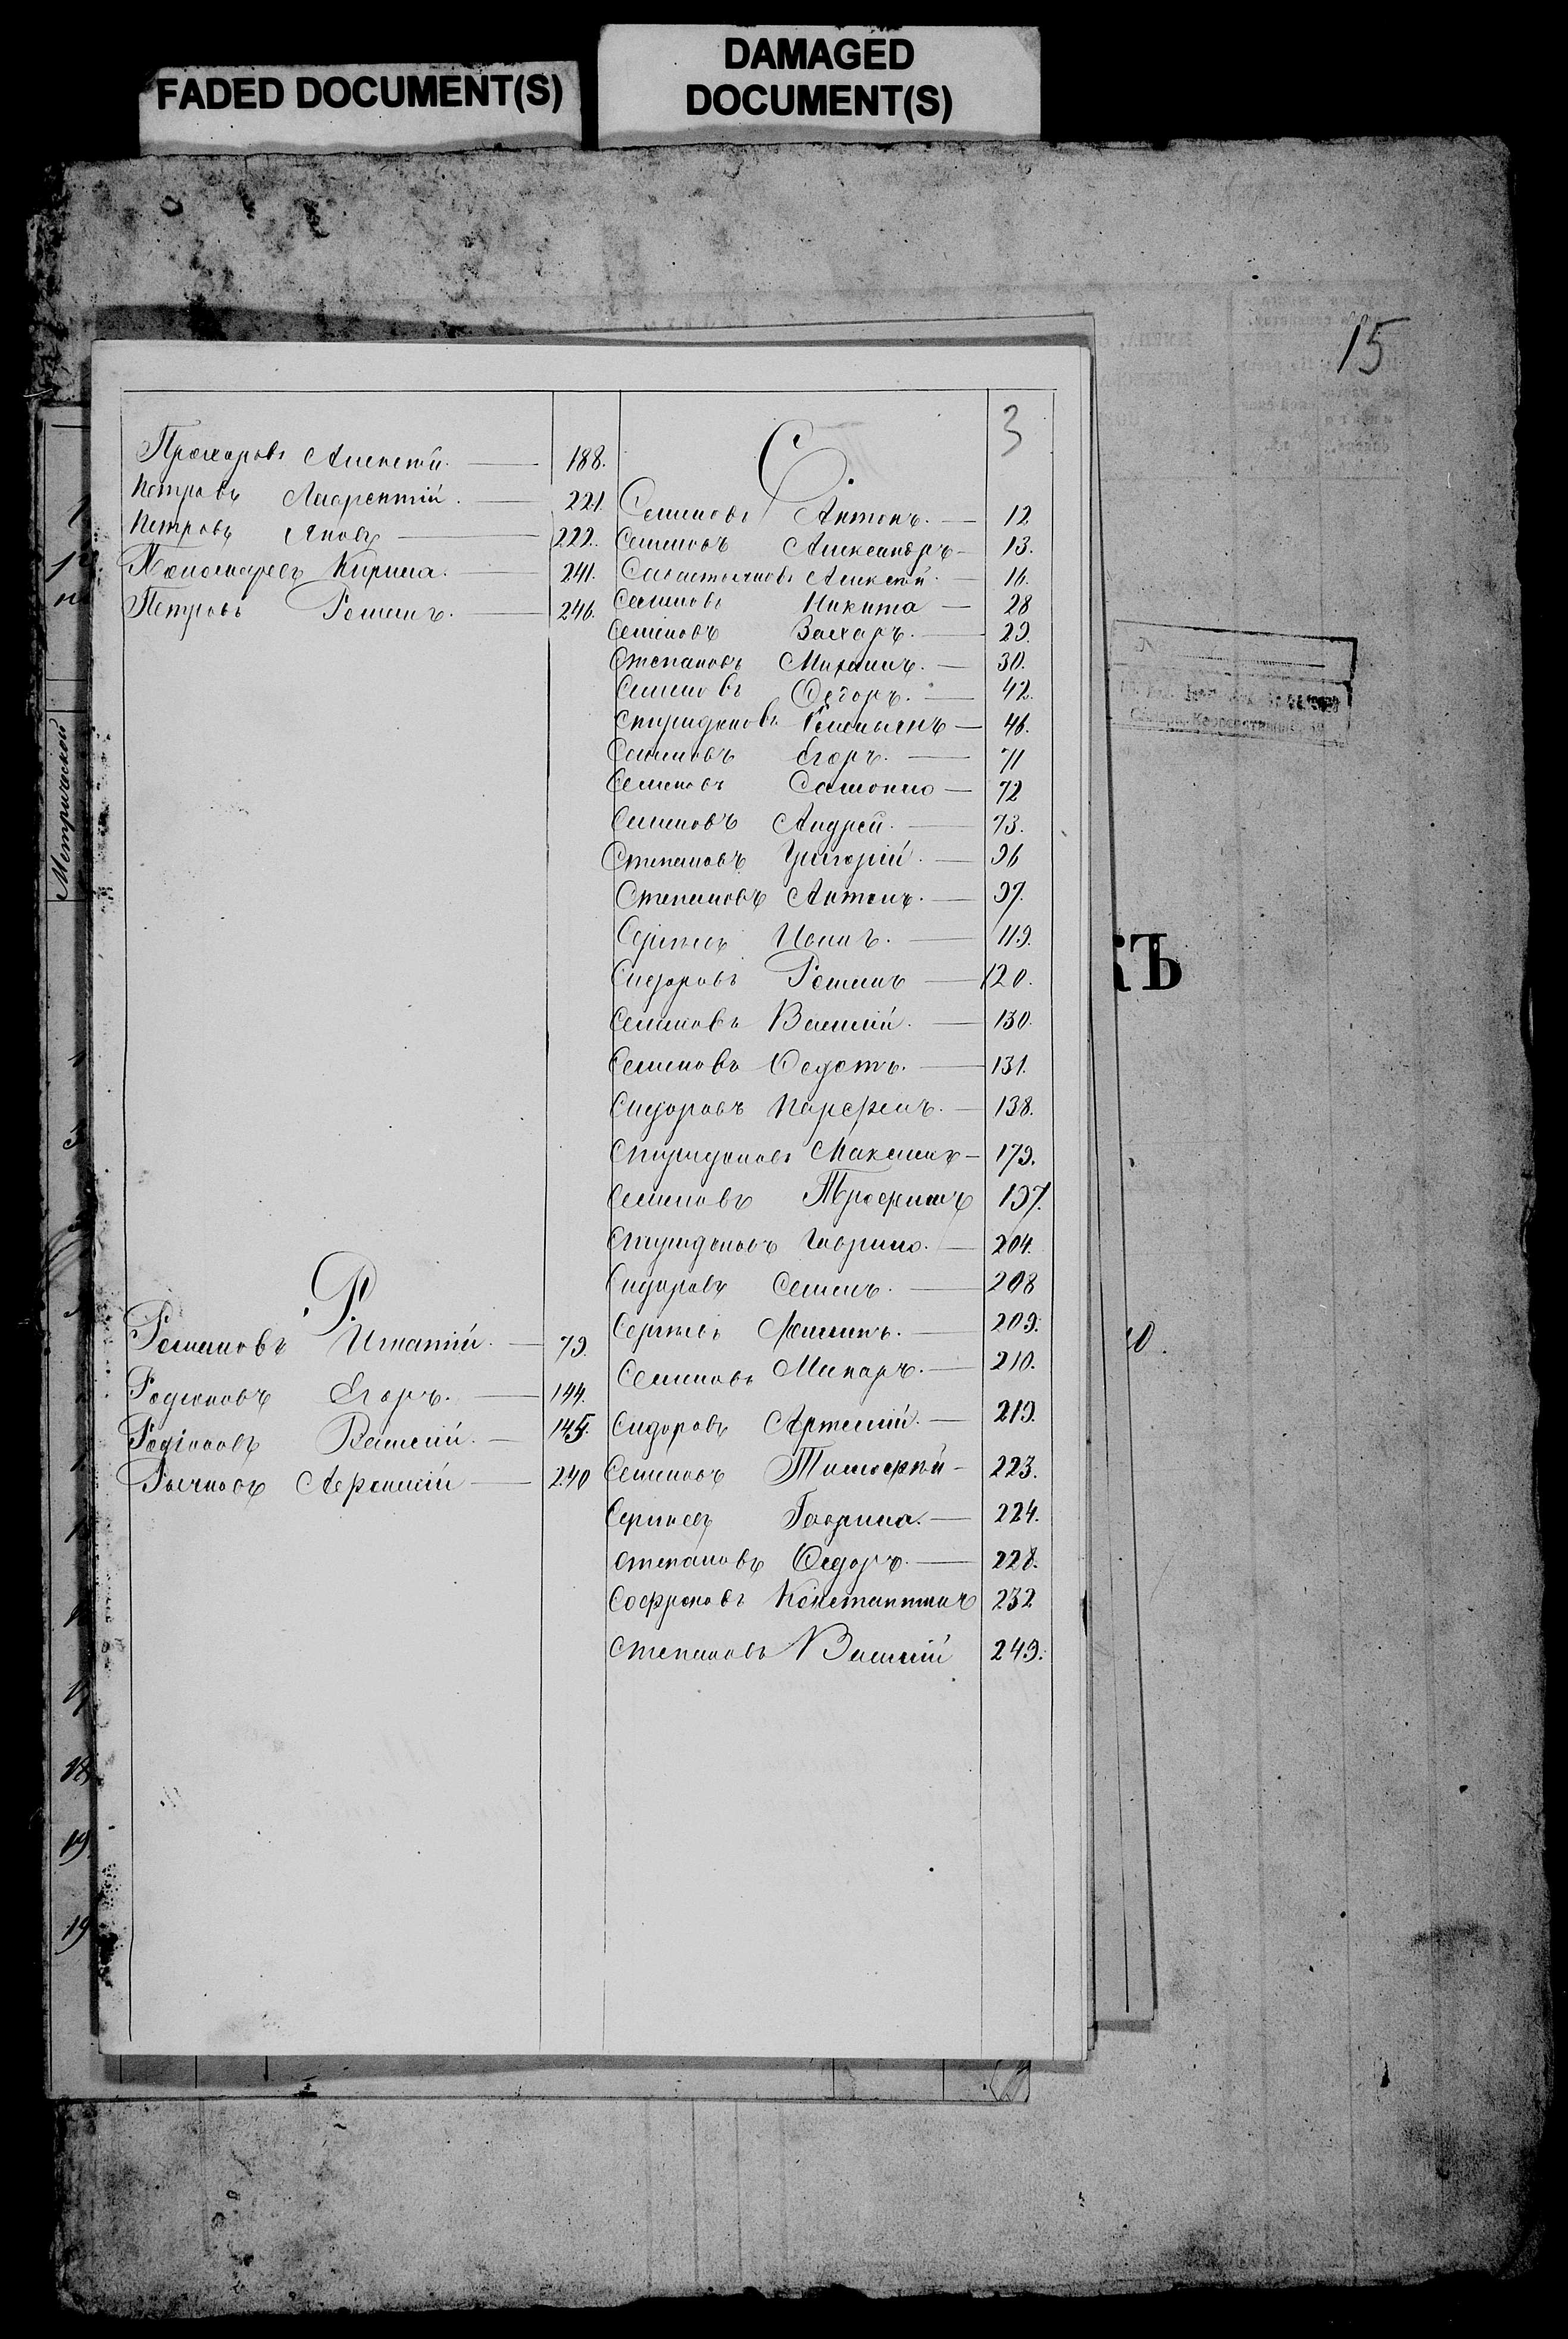 FADED DOCUMENT(S)
DAMAGED
DOCUMENT(S)
15
3
Прохоровъ Алексѣй. 188.
Петровъ Лаврентій. 221.
Петровъ Яковъ 222.
Пономаревъ Кирила. 241.
Петровъ Романъ. 246.
Р.
Романовъ Игнатій. 79.
Родионовъ Егоръ. 144.
Родіоновъ Василій. 145.
Рычковъ Афонасій 240
С.
Семеновъ Антонъ. 12
Семеновъ Александръ 13.
Савастьяновъ Алексѣй. 16.
Семеновъ Никита 28
Семеновъ Захаръ. 29.
Степановъ Михаилъ. 30.
Семеновъ Ѳедоръ. 42.
Спиридоновъ Емельянъ 46.
Семеновъ Егоръ. 71
Семеновъ Самойло 72
Семеновъ Андрей. 73.
Степановъ Григорій. 96
Степановъ Антонъ. 97.
Сергѣевъ Иванъ. 119.
Сидоровъ Романъ 120.
Семеновъ Василій. 130.
Семеновъ Ѳедотъ. 131.
Сидоровъ Парфенъ. 138.
Спиридоновъ Максимъ 179.
Семеновъ Трофимъ 197.
Спиридоновъ Гаврило. 204.
Сидоровъ Семенъ. 208
Сергѣевъ 209.
Семеновъ Макаръ. 210.
Сидоровъ Артемій. 219.
Семеновъ Тимофѣй 223.
Сергѣевъ Гаврила. 224.
Степановъ Ѳедоръ. 228.
Софроновъ Константинъ 232
Степановъ Василій 249.
Метрической
18
19
19
Ъ